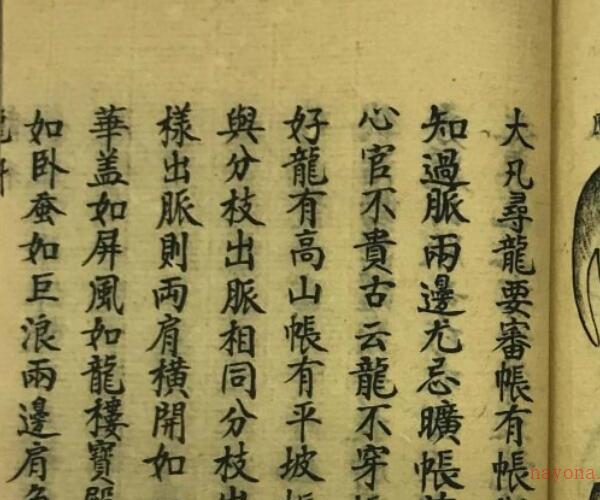 大凡尋龍要審帳有帳
知過脈兩邊尤忌曠帳
心官不貴古云龍不穿
好龍有高山帳有平坡
與分枝出脈相同分枝
樣出脈則両肩橫開如
華盖如屏風如龍樓寶殿
如卧蚕如巨浪兩邊肩
hayona